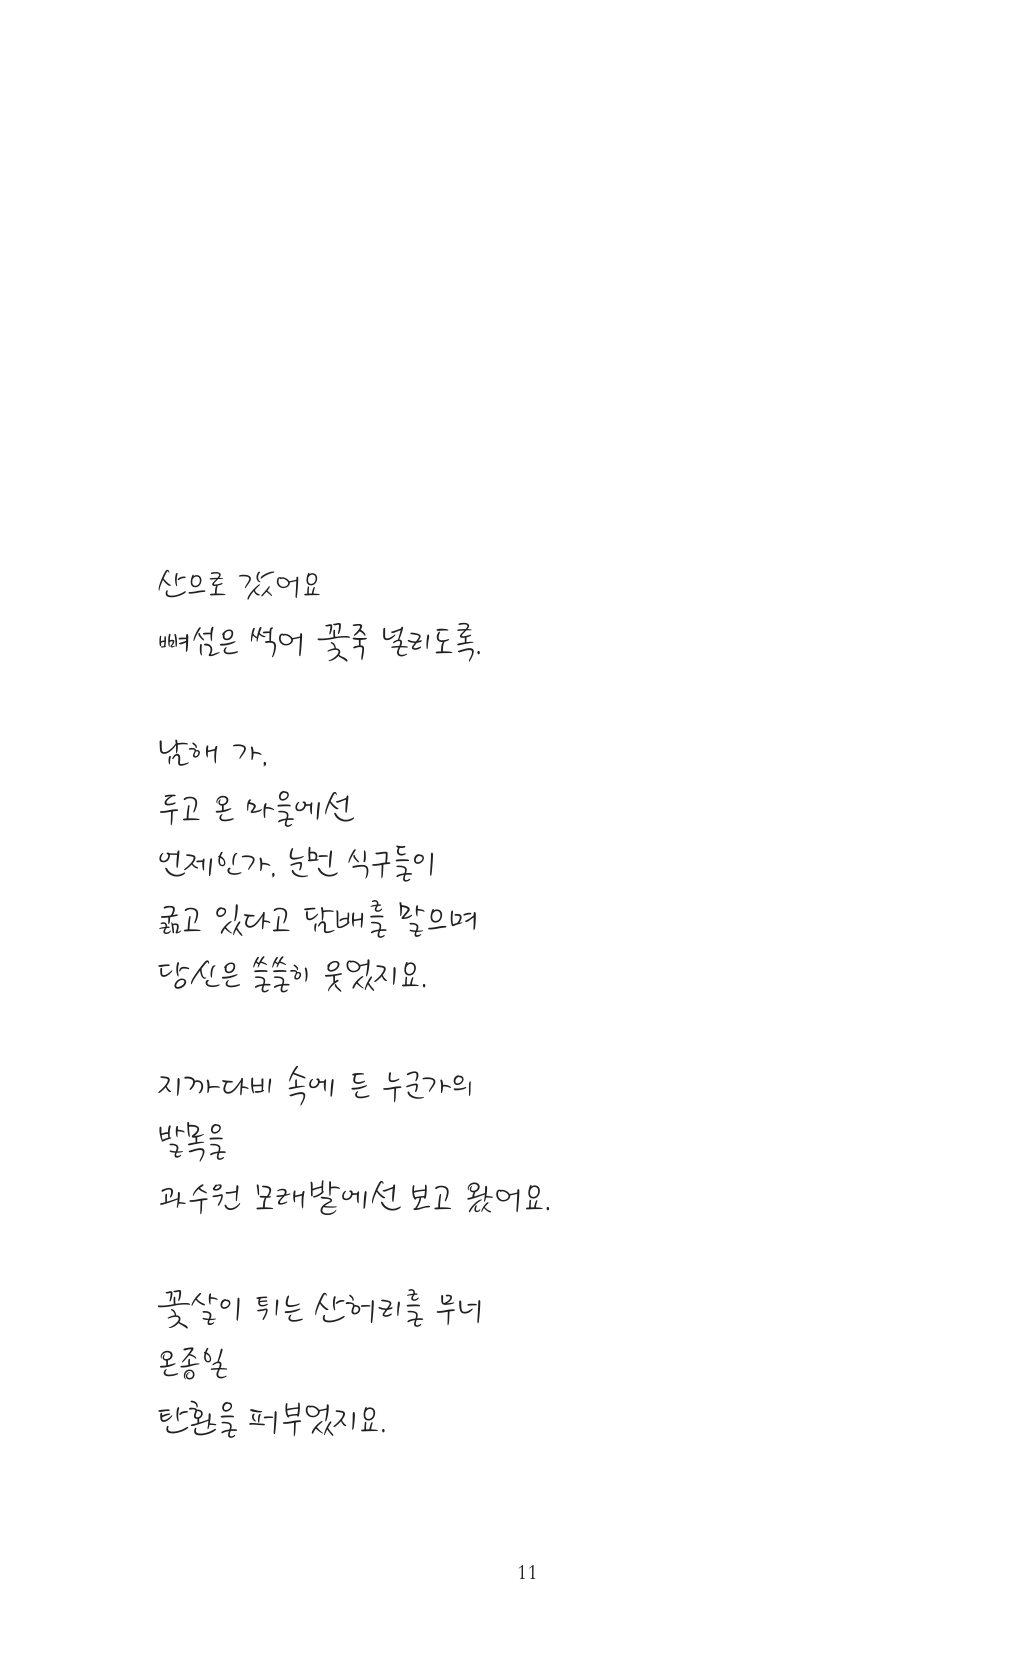 산으로 갔어요
뼈섬은 썩어 꽃죽 널리도록.
남해 가,
두고 온 마을에선
언제인가, 눈먼 식구들이
굶고 있다고 담배를 말으며
당신은 쓸쓸히 웃었지요.
지까다비 속에 든 누군가의
발목을
과수원 모래밭에선 보고 왔어요.
꽃살이 튀는 산허리를 무너
온종일
탄환을 퍼부었지요.
11